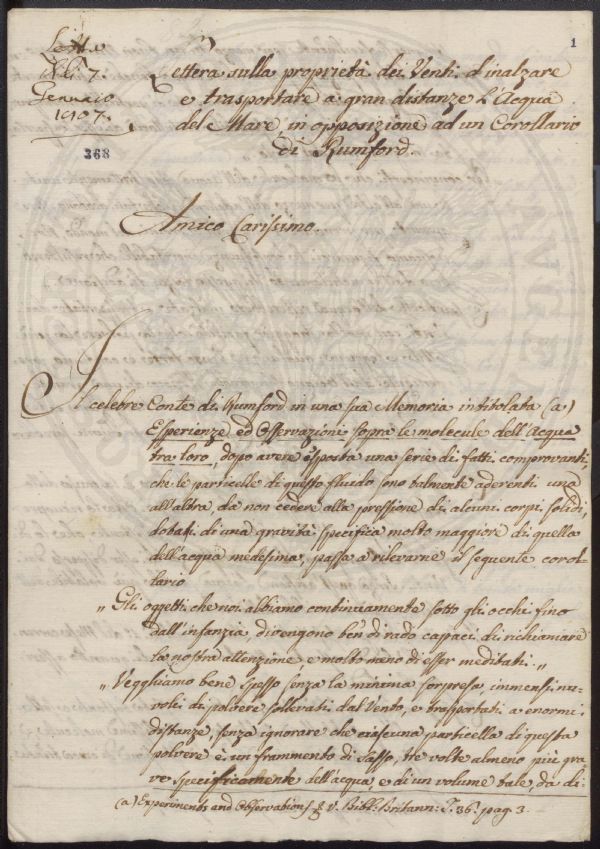 1
Letta
Alli 7.
Gennaio
1807.
368
Lettera sulla proprietà dei Venti d'inalzare
e trasportare a gran distanze l'Acqua
del Mare, in opposizione ad un Corollario
di Rumford.
Amico Carissimo.
Il celebre Conte di Rumford in una sua Memoria intitolata (a)
Esperienze ed Osservazioni sopra le molecule dell'Acqua
tra loro, dopo avere esposta una serie di fatti comprovanti,
che le particelle di questo fluido sono talmente aderenti una
all'altra da non cedere alla pressione di alcuni corpi solidi,
dotati di una gravità specifica molto maggiore di quella
dell'acqua medesima, passa a rilevarne il seguente corol-
lario
„ Gli oggetti che noi abbiamo continuamente sotto gli occhi fino
dall'infanzia, divengono ben di rado capaci di richiamare
la nostra attenzione, e molto meno di esser meditati. „
„ Veggliamo bene spesso senza la minima sorpresa, immensi nu-
voli di polvere sollevati dal Vento, e trasportati a enormi
distanze, senza ignorare che ciascuna particella di questa
polvere è un frammento di sasso, tre volte almeno più gra-
ve specificamente dell'acqua, e di un volume tale, da di-
(a) Experiments and Observations & V. Bibl: Britann: T. 36. pag. 3.